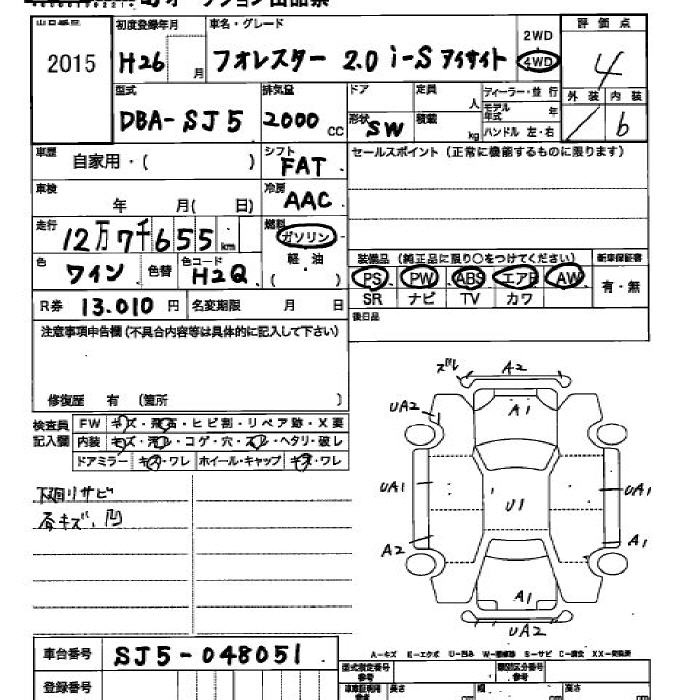 オークション出品票
出品番号 初度登録年月 車名・グレード 2WD 評価点
2015 H26 月 フォレスター 2.0 i-S アイサイト 4WD 4
型式 排気量 ドア 定員 人 ディーラー・並行 外装 内装
DBA-SJ5 2000 CC 形状 SW 積載 kg モデル年式 年 ハンドル 左・右 b
車歴 自家用・( ) シフト FAT セールスポイント (正常に機能するものに限ります)
車検 年 月( 日) 冷房 AAC
走行 12万7千655 km 燃料 ガソリン
色 ワイン 色替 色コード H2Q 軽油 ( )
装備品 (純正品に限り○をつけてください) 新車保証書
PS PW ABS エアB AW 有・無
SR ナビ TV カワ
R券 13.010 円 名変期限 月 日 後日品
注意事項申告欄 (不具合内容等は具体的に記入して下さい)
修復歴 有 (箇所 )
検査員記入欄 FW キズ・飛石・ヒビ割・リペア跡・X要
内装 キズ・汚レ・コゲ・穴・スレ・ヘタリ・破レ
ドアミラー キズ・ワレ ホイール・キャップ キズ・ワレ
下廻リサビ
各キズ、凹
ズレ A2
UA2 A1
UA1 U1 UA1
A2 A1
A1
UA2
A-キズ E-エクボ U-凹み W-補修跡 S-サビ C-腐食 XX-交換済
車台番号 SJ5-048051
型式指定番号 参考 類別区分番号 参考
登録番号 車車証明用 参考 長さ cm 幅 cm 高さ cm